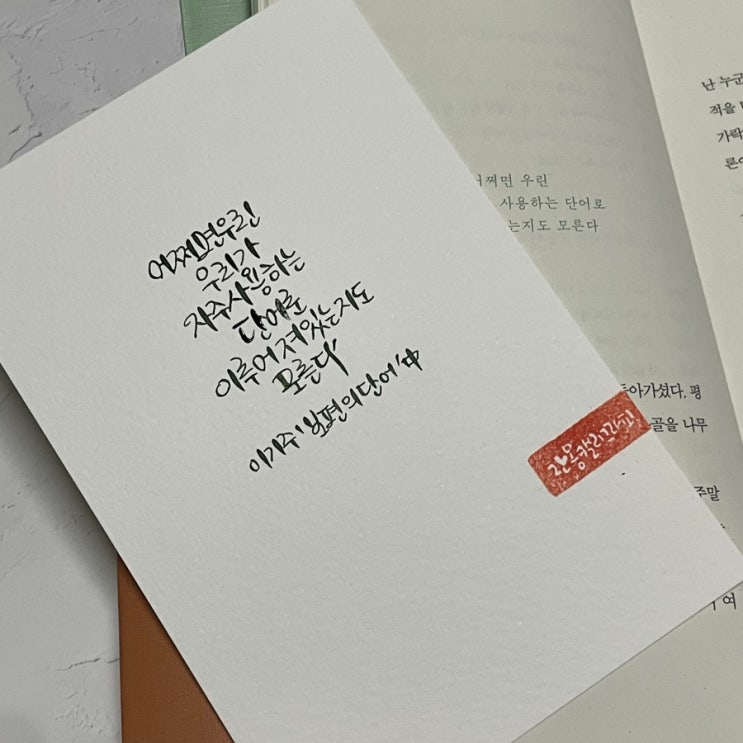 어쩌면우린
우리가
자주사용하는
단어로
이루어져있는지도
모른다
이기주 '보편의단어' 中
캘리그라피
어쩌면 우린
사용하는 단어로
는지도 모른다
난 누군
적을
가락
아가셨다. 평
골을 나무
주말
여